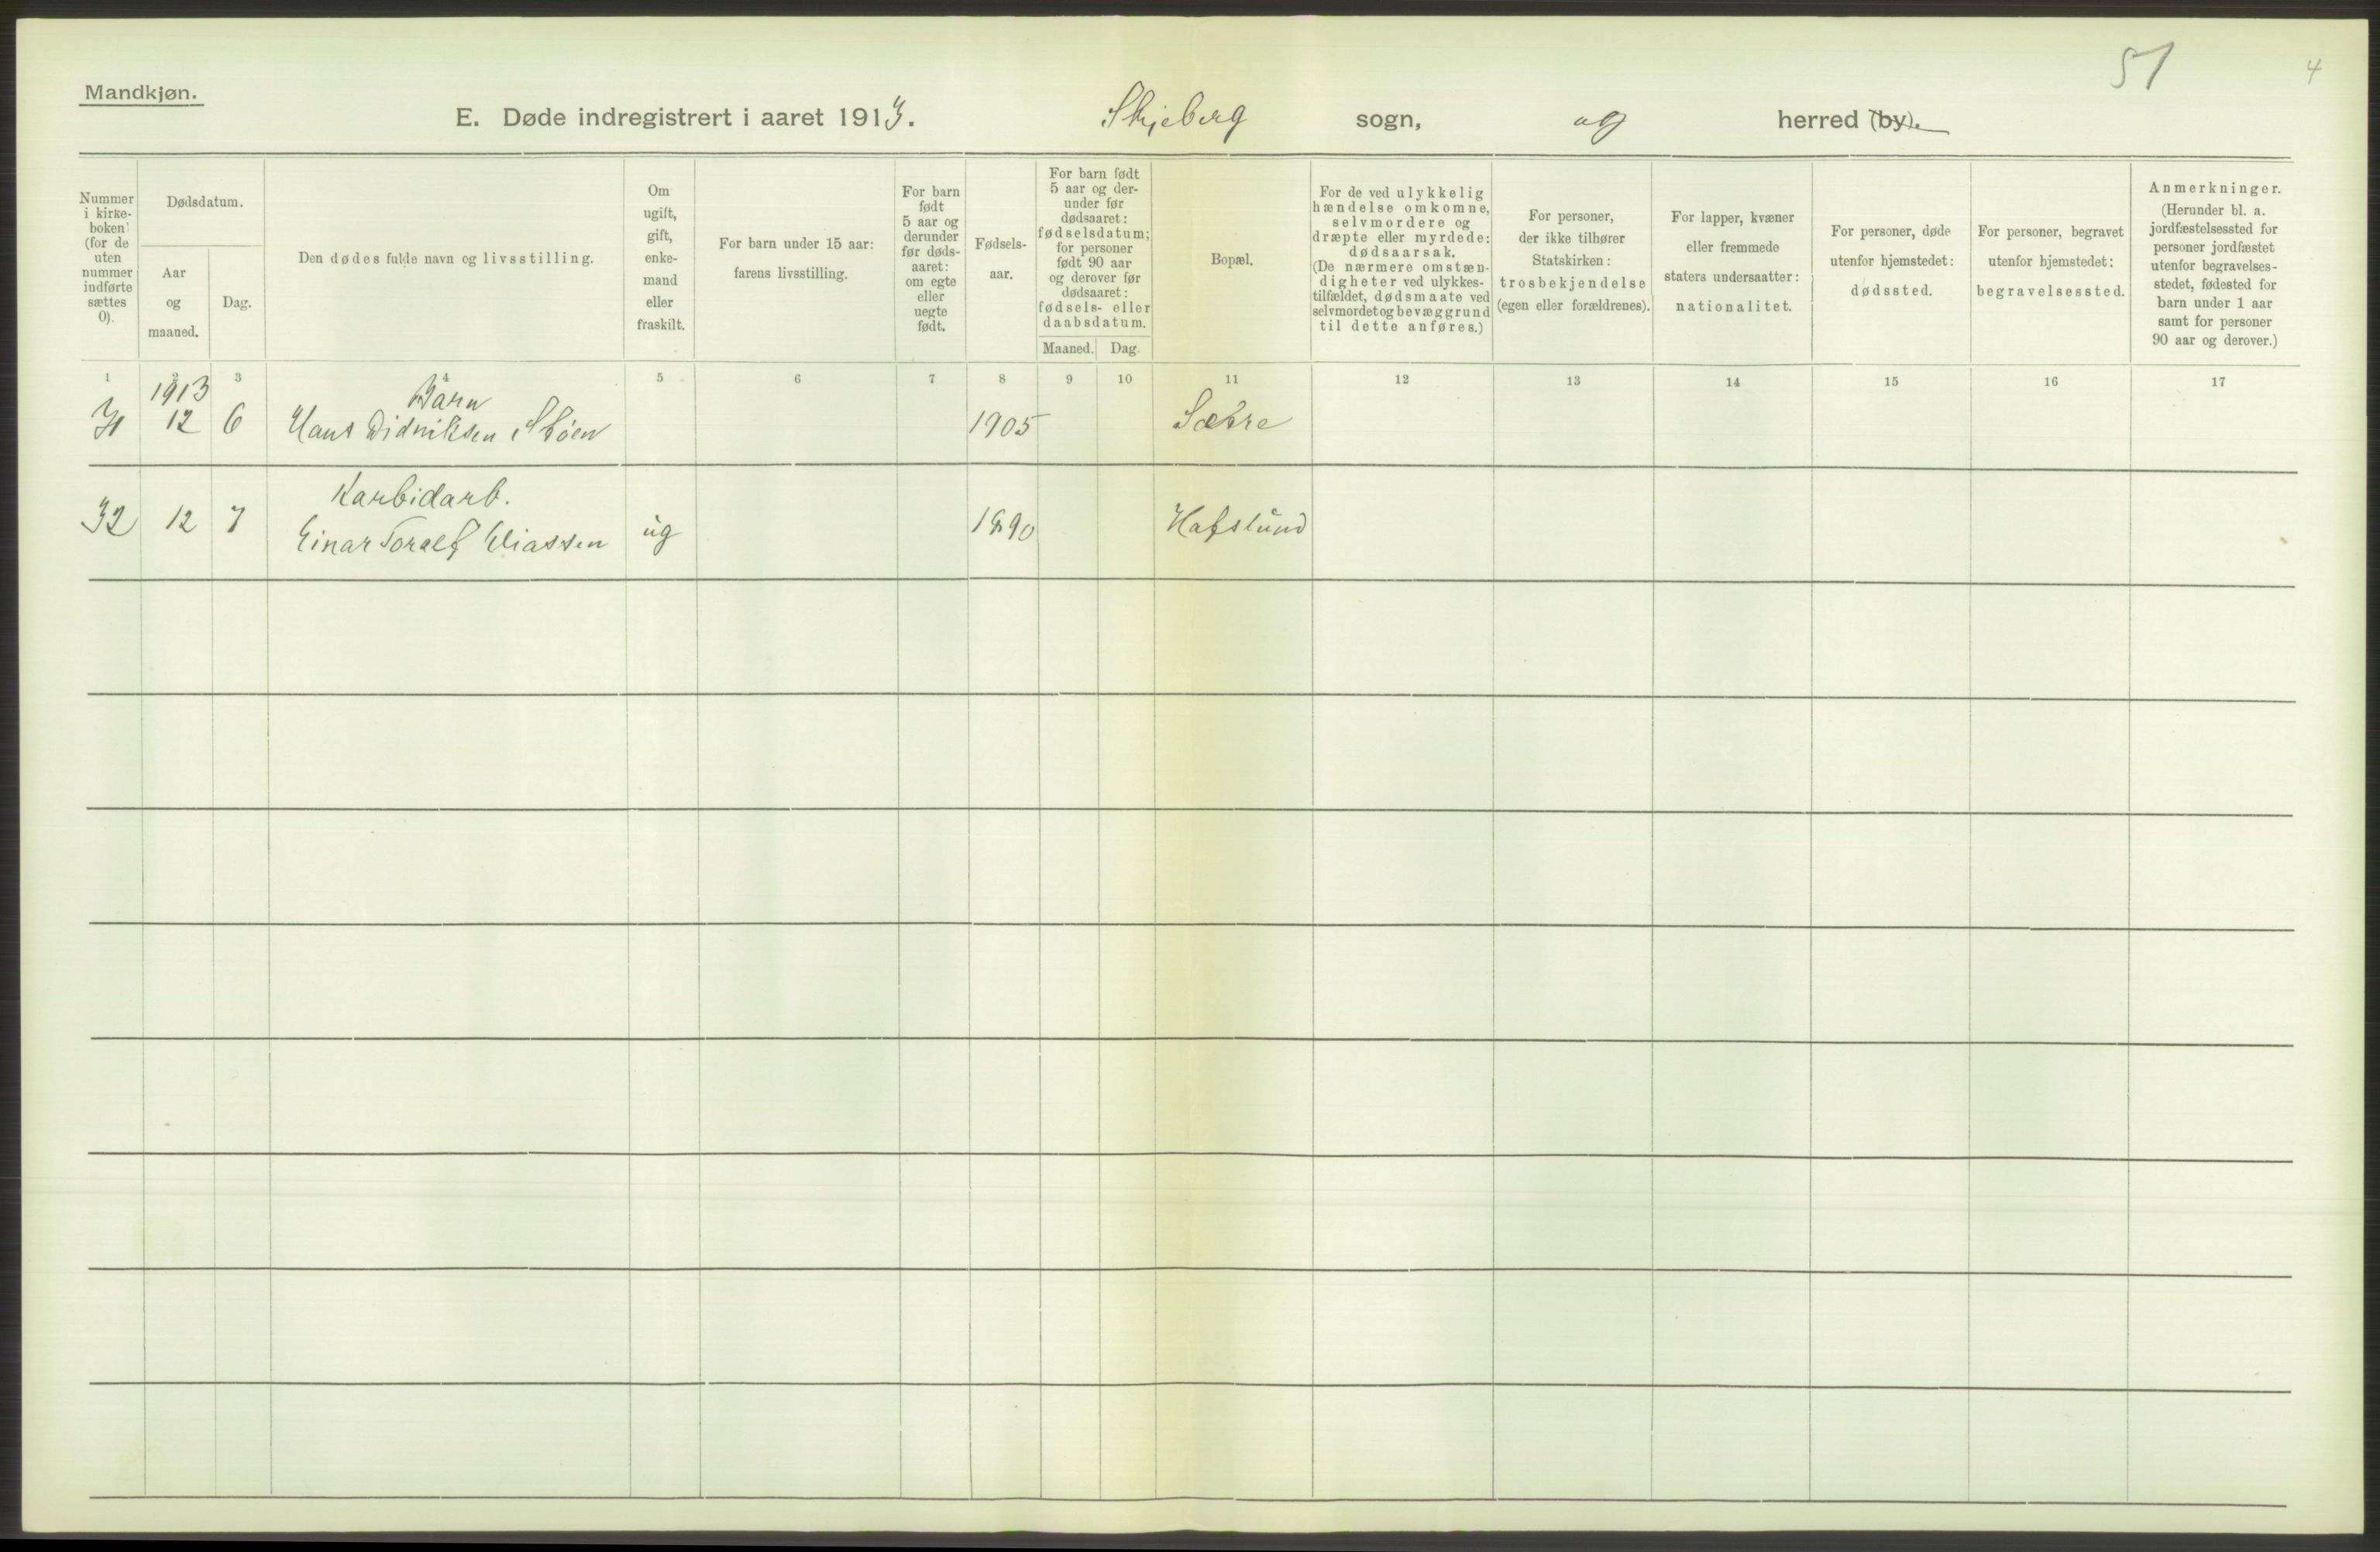 51
4
Mandkjøn.
E. Døde indregistrert i aaret 1913. Skjeberg sogn, og herred (by).
Nummer i kirke-boken (for de uten nummer indførte sættes 0).
Dødsdatum.
Aar og maaned.
Dag.
Den dødes fulde navn og livsstilling.
Om ugift, gift, enke-mand eller fraskilt.
For barn under 15 aar: farens livsstilling.
For barn født 5 aar og derunder før døds-aaret: om egte eller uegte født.
Fødsels-aar.
For barn født 5 aar og der-under før dødsaaret: fødselsdatum; for personer født 90 aar og derover før dødsaaret: fødsels- eller daabsdatum.
Maaned. Dag.
Bopæl.
For de ved ulykkelig hændelse omkomne, selvmordere og dræpte eller myrdede: dødsaarsak. (De nærmere omstæn-digheter ved ulykkes-tilfældet, dødsmaate ved selvmordet og bevæggrund til dette anføres.)
For personer, der ikke tilhører Statskirken: trosbekjendelse (egen eller forældrenes).
For lapper, kvæner eller fremmede staters undersaatter: nationalitet.
For personer, døde utenfor hjemstedet: dødssted.
For personer, begravet utenfor hjemstedet: begravelsessted.
Anmerkninger. (Herunder bl. a. jordfæstelsessted for personer jordfæstet utenfor begravelses-stedet, fødested for barn under 1 aar samt for personer 90 aar og derover.)
1 2 3 4 5 6 7 8 9 10 11 12 13 14 15 16 17
1913 Barn
31 12 6 Hans Didriksen Stöen 1905 Sætre
Karbidarb.
32 12 7 Einar Toralf Eliassen ug 1890 Hafslund